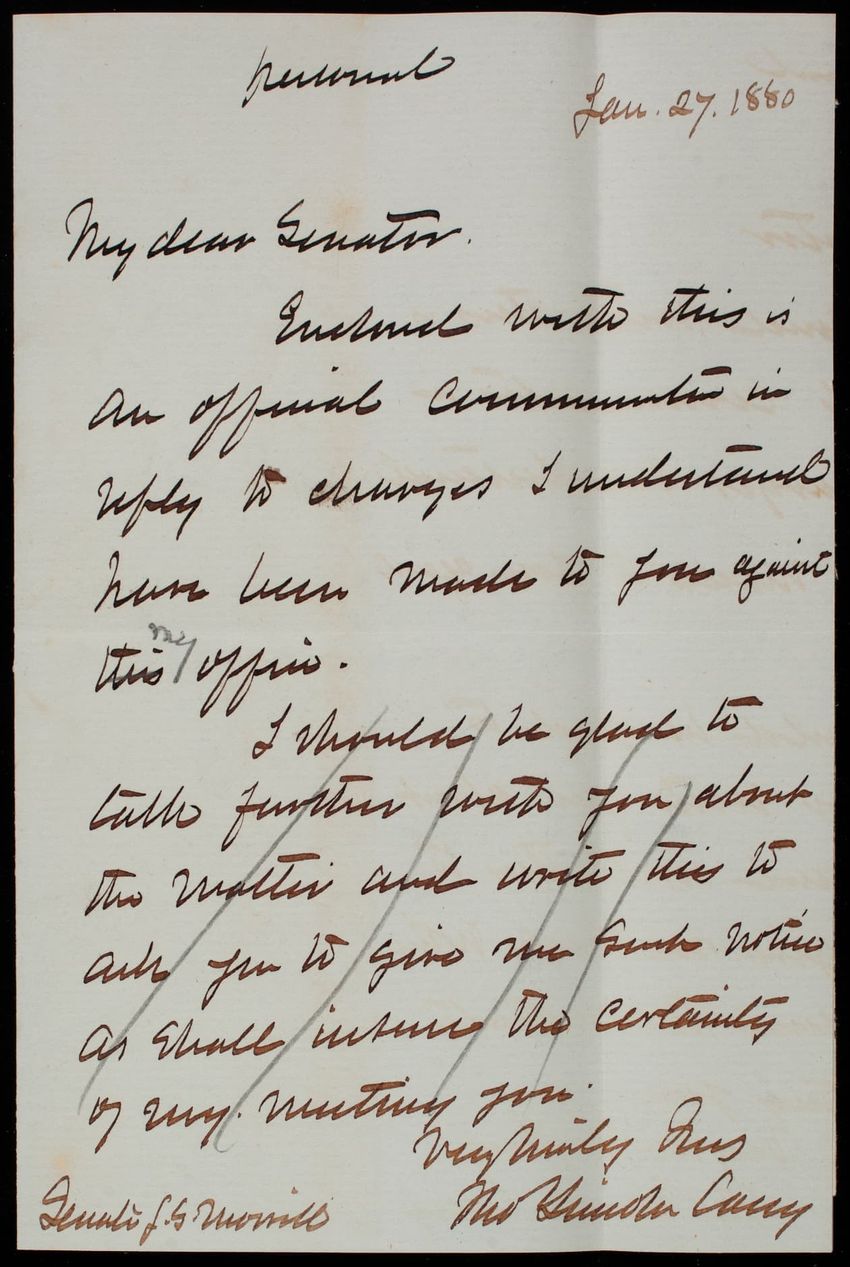 personal
Jan. 27. 1880
My dear Senator.
Enclosed with this is
an official communication in
reply to charges I understand
have been made to you against
my
this office.
I should be glad to
talk further with you about
the matter and write this to
ask you to give me such notice
as shall insure the certainty
of my meeting you.
Very truly Yours
Tho Lincoln Casey
Senator J. S Morrill